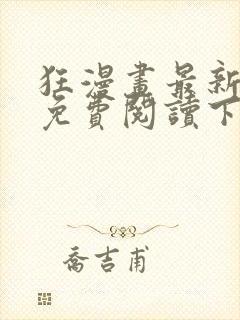 狂漫畫最新
免費閱讀下
喬吉甫